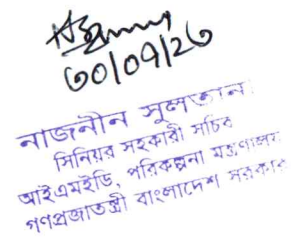 ৩০/০৭/২৩
নাজনীন সুলতানা
সিনিয়র সহকারী সচিব
আইএমইডি, পরিকল্পনা মন্ত্রণালয়
গণপ্রজাতন্ত্রী বাংলাদেশ সরকার